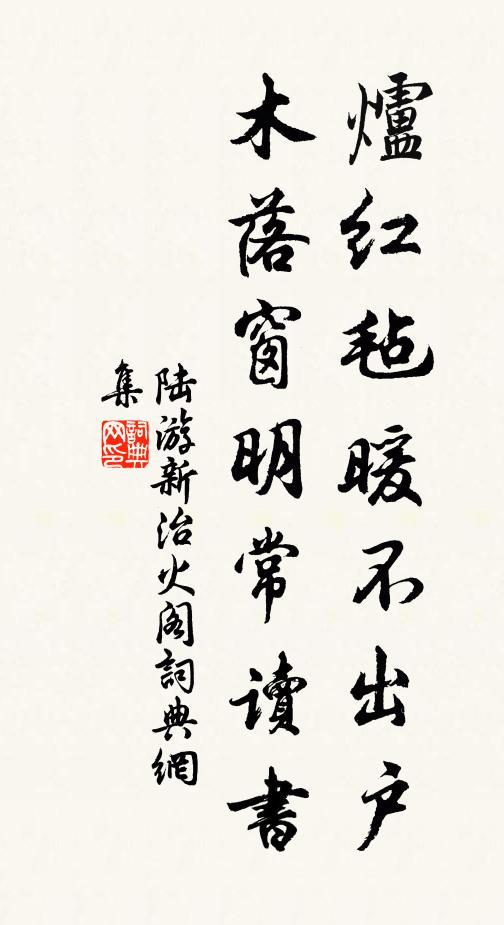 爐红毡暖不出户
木落窗明常讀書
陆游新治火阁詞典網
集
詞典网印